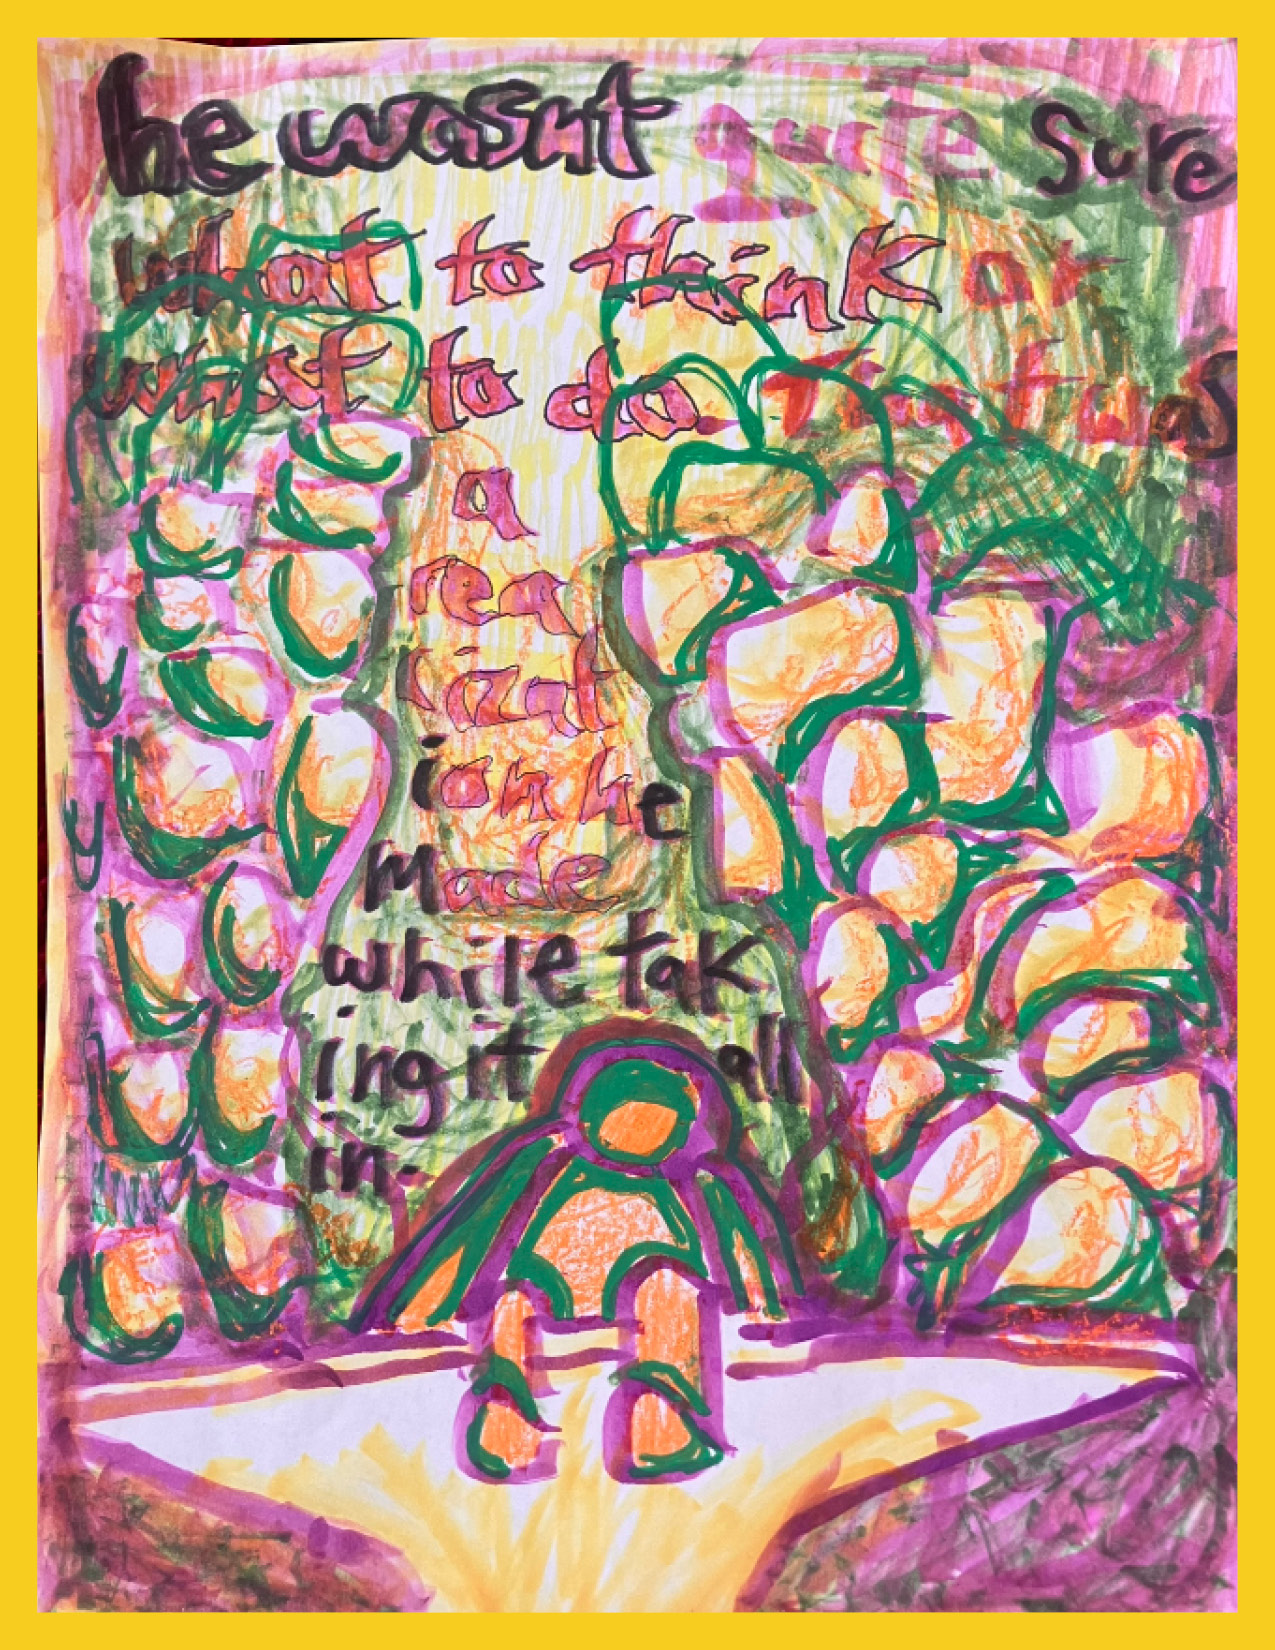 he wasnt quite sure
what to think or
what to do. That was
a
rea
lizat
ion he
Made
while tak
ing it all
in.